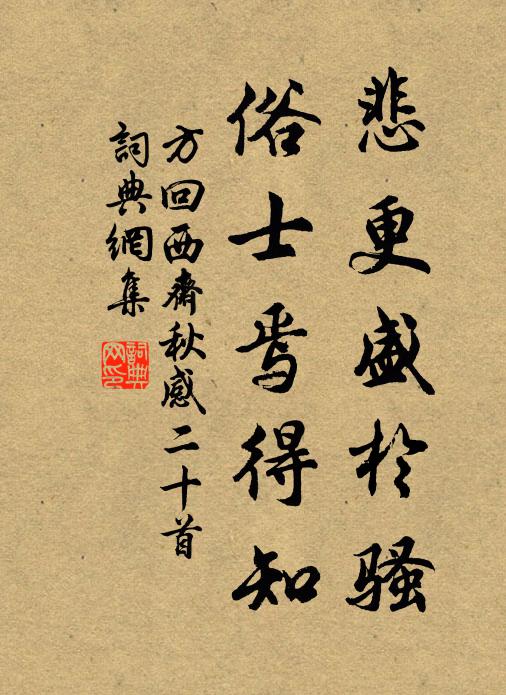 悲更盛於騷
俗士焉得知
方回西齋秋感二十首
詞典網集
詞典網印